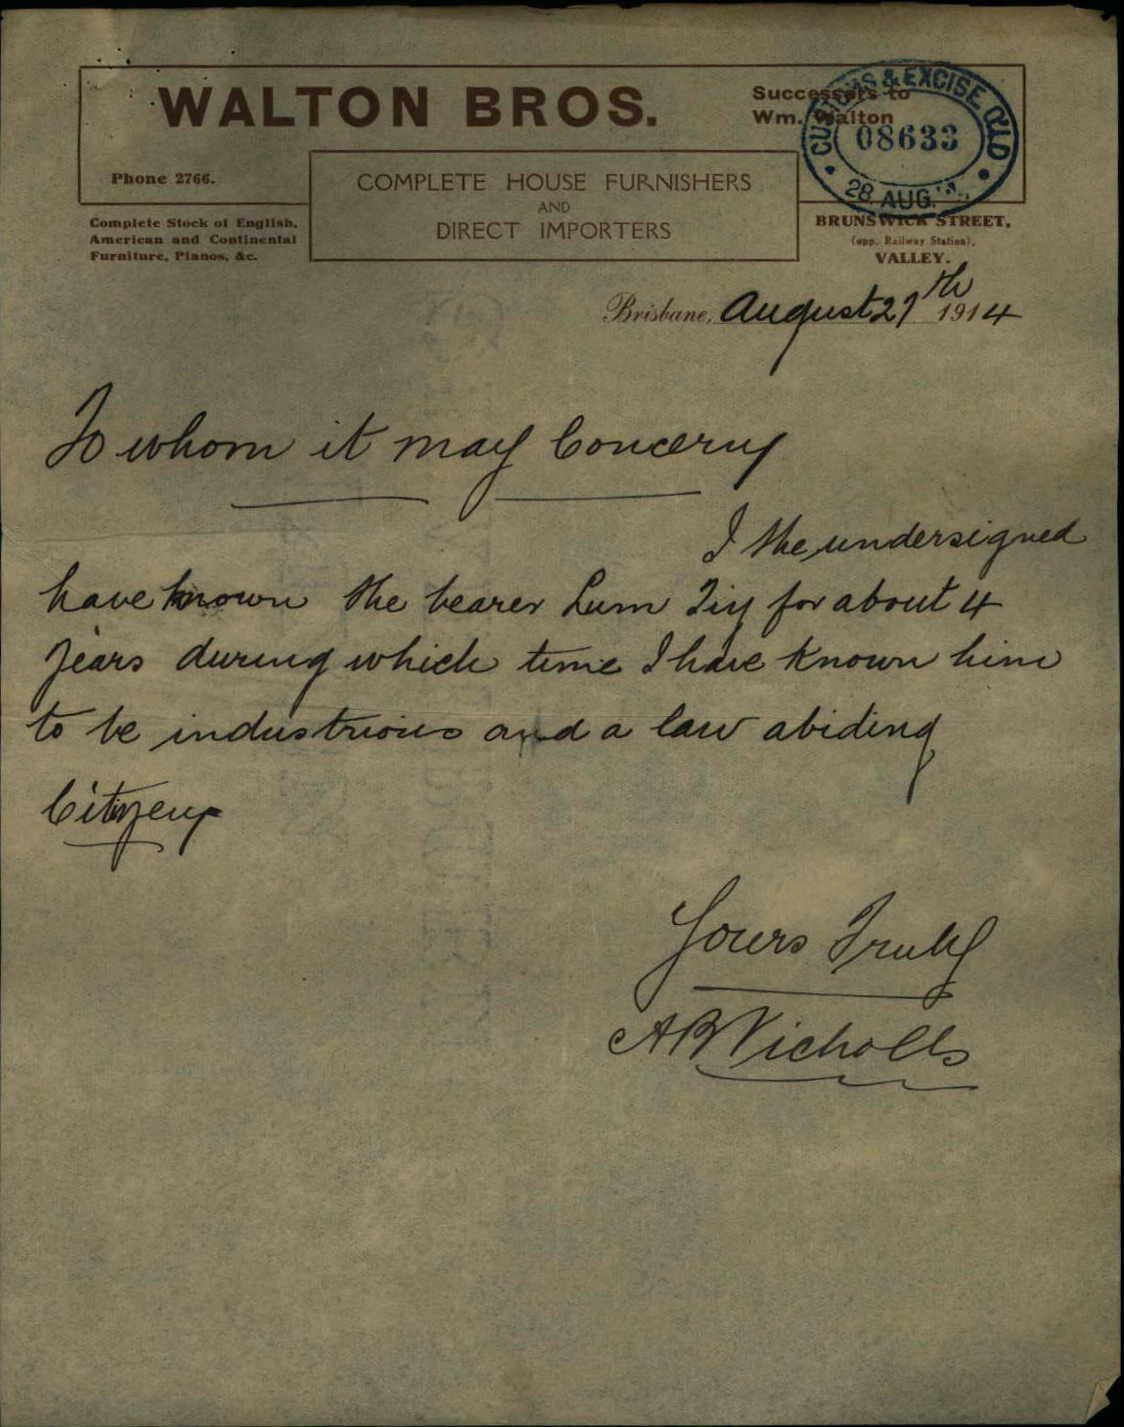 WALTON BROS.
Successors to
Wm. Walton
CUSTOMS & EXCISE, QLD
08633
28 AUG.
Phone 2766.
COMPLETE HOUSE FURNISHERS
AND
DIRECT IMPORTERS
Complete Stock of English,
American and Continental
Furniture, Pianos, &c.
BRUNSWICK STREET,
(opp. Railway Station),
VALLEY.
Brisbane, August 27th 1914
To whom it may Concern
I the undersigned
have known the bearer Lum for about 4
years during which time I have known him
to be industrious and a law abiding
Citizen
Yours Truly
A B Nicholls